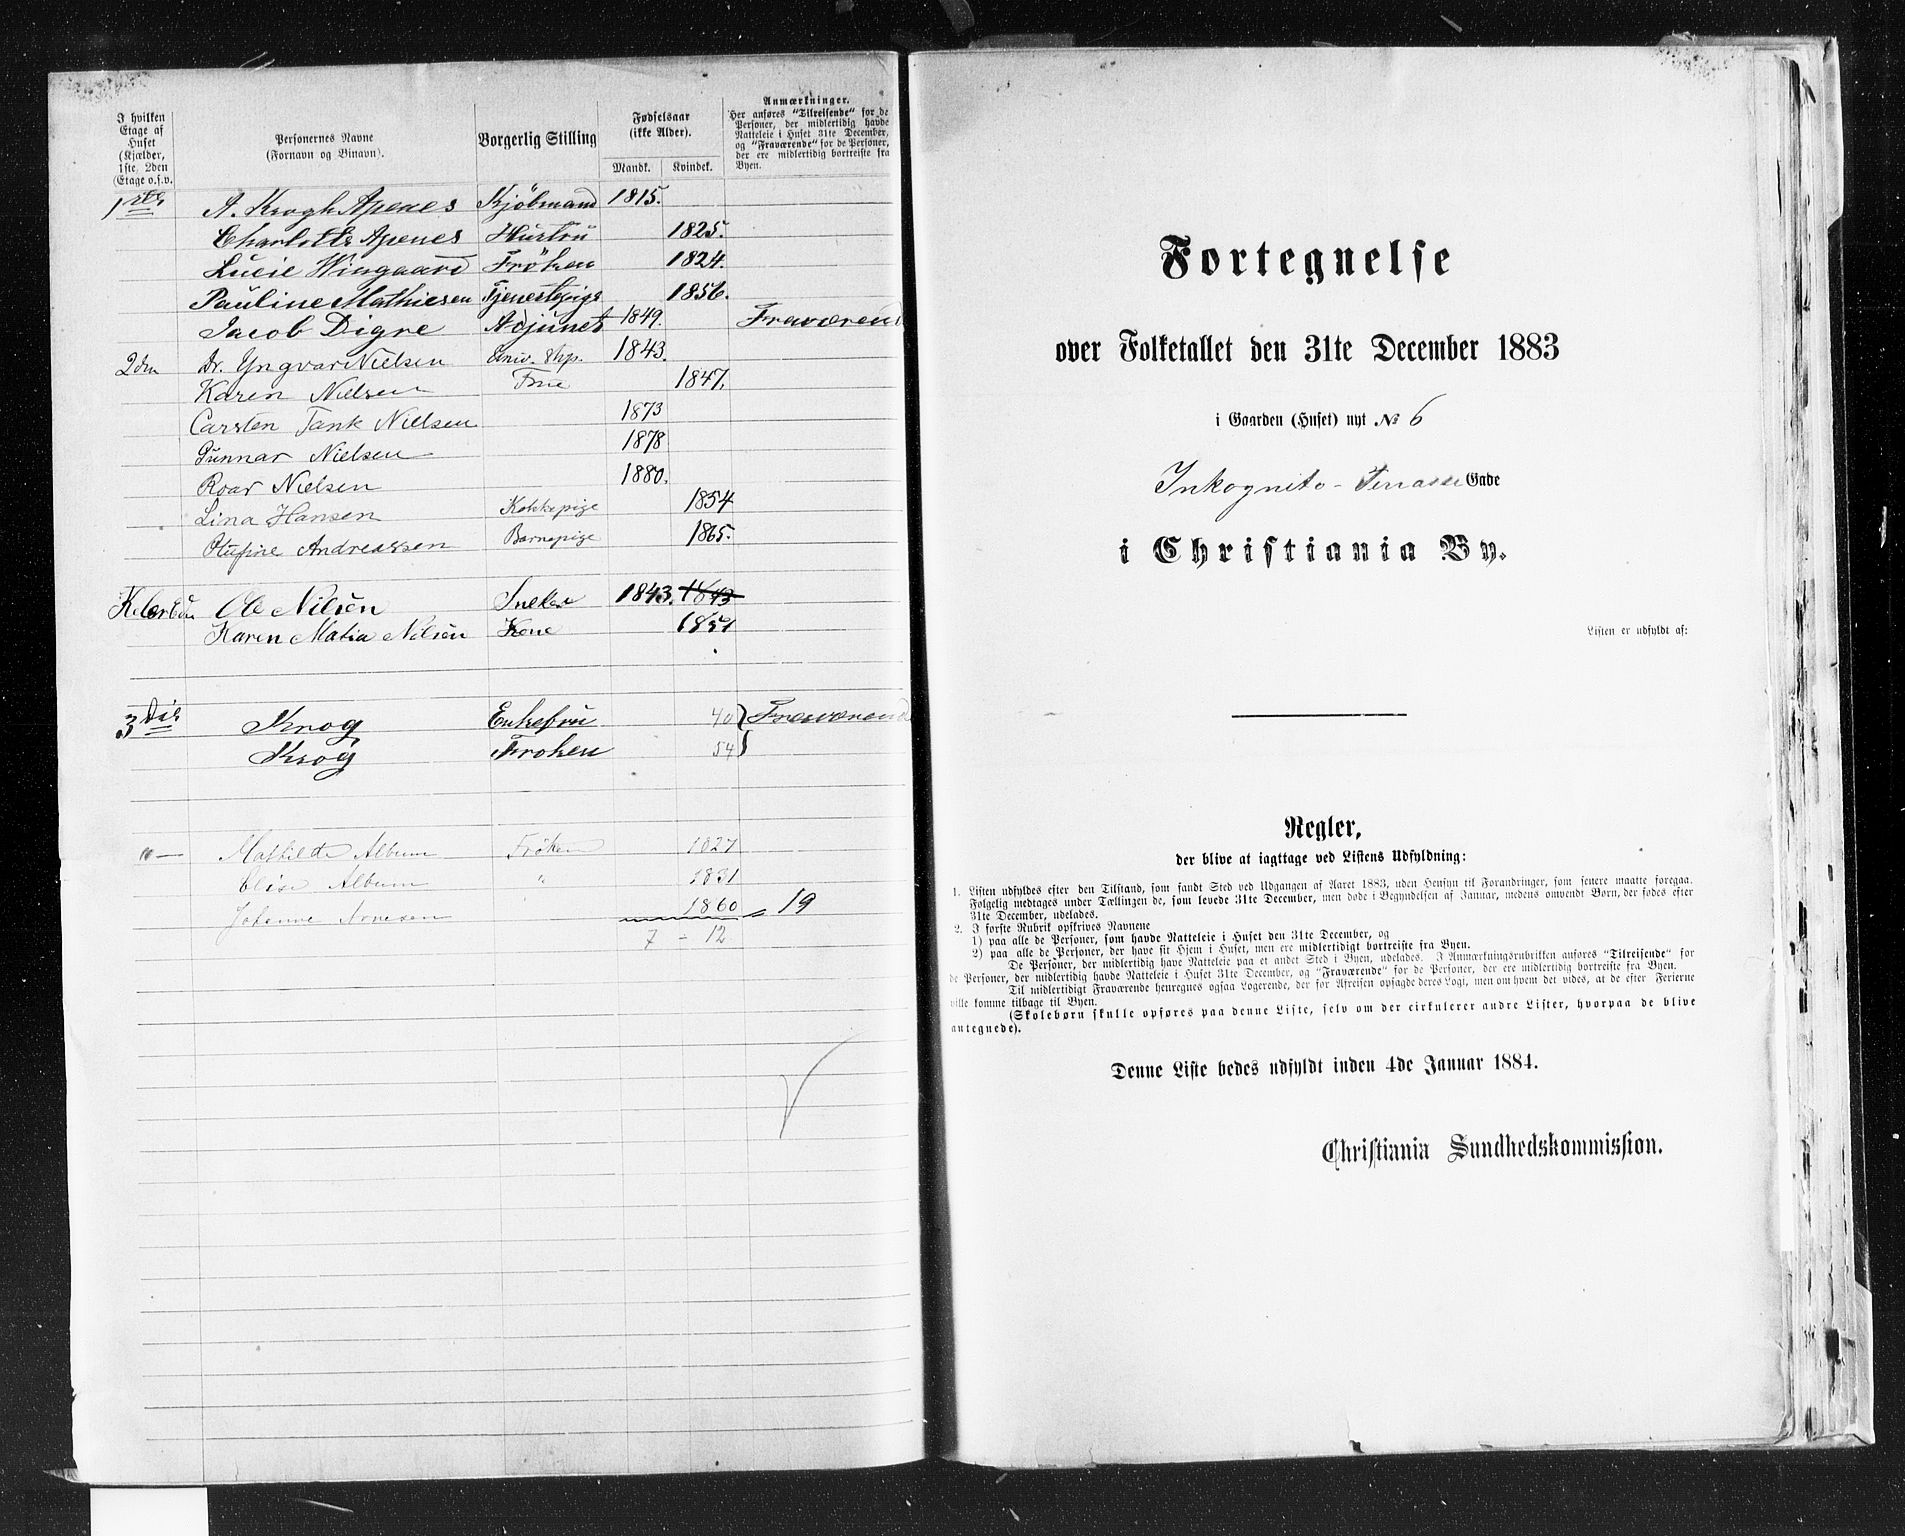 I hvilken
Etage af
Huset
(Kjælder,
1ste, 2den
Etage o.s.v.
Personernes Navne
(Fornavn og Binavn).
Borgerlig Stilling
Fødselsaar
(ikke Alder).
Mandk. Kvindek.
Anmærkninger.
Her anføres "Tilreisende" for de
Personer, der midlertidig havde
Natteleie i Huset 31te December,
og "Fraværende" for de Personer,
der ere midlertidig bortreiste fra
Byen.
1ste A. Krogh Apenes Kjöbmand 1815.
Charlotte Apenes Hustru 1825.
Lucie Wingaard Fröken 1824.
Pauline Mathiesen Tjenestepige 1856.
Jacob Digre Adjunct 1849. Fraværend
2den Dr. Yngvar Nielsen Univ. Stip. 1843.
Karen Nielsen Frue 1847.
Carsten Tank Nielsen 1873
Gunnar Nielsen 1878
Roar Nielsen 1880.
Lina Hansen Kokkepige 1854
Olufine Andreassen Barnepige 1865.
Ole Nilsen Sneker 1843. 1843
Karen Matia Nilsen Kone 1851
3die Krog Enkefru 40 } Fraværend
Krog Froken 54 }
"— Mathilde Album Fröken 1827
Elise Album " 1831
Johanne Arnesen 1860
7 - 12 = 19
Fortegnelse
over Folketallet den 31te December 1883
i Gaarden (Huset) nyt No 6
Inkognito-Terrasse Gade
i Christiania By.
Listen er udfyldt af:
Regler,
der blive at iagttage ved Listens Udfyldning:
1. Listen udfyldes efter den Tilstand, som fandt Sted ved Udgangen af Aaret 1883, uden Hensyn til Forandringer, som senere maatte foregaa.
Følgelig medtages under Tællingen de, som levede 31te December, men døde i Begyndelsen af Januar, medens omvendt Børn, der fødes efter
31te December, udelades.
2. I første Rubrik opskrives Navnene
1) paa alle de Personer, som havde Natteleie i Huset den 31te December, og
2) paa alle de Personer, der have sit Hjem i Huset, men ere midlertidigt bortreiste fra Byen.
De Personer, der midlertidig have Natteleie paa et andet Sted i Byen, udelades. I Anmærkningsrubriken anføres "Tilreisende" for
de Personer, der midlertidig havde Natteleie i Huset 31te December, og "Fraværende" for de Personer, der ere midlertidig bortreiste fra Byen.
Til midlertidigt Fraværende henregnes ogsaa Logerende, der før Afreisen opsagde deres Logi, men om hvem det vides, at de efter Ferierne
ville komme tilbage til Byen.
(Skolebørn skulle opføres paa denne Liste, selv om der cirkulerer andre Lister, hvorpaa de blive
antegnede).
Denne Liste bedes udfyldt inden 4de Januar 1884.
Christiania Sundhedskommission.